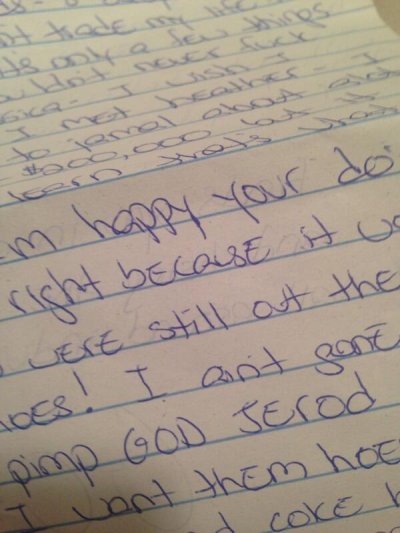 trade my life
ts only a few things
uldn't never fuck
I wish I
I met heather - I
to jamal about
$200,000 but it
learn that's what
m happy your do
right because it
were still out the
hoes! I ain't gone
pimp GOD Jerod
I want them hoe
coke